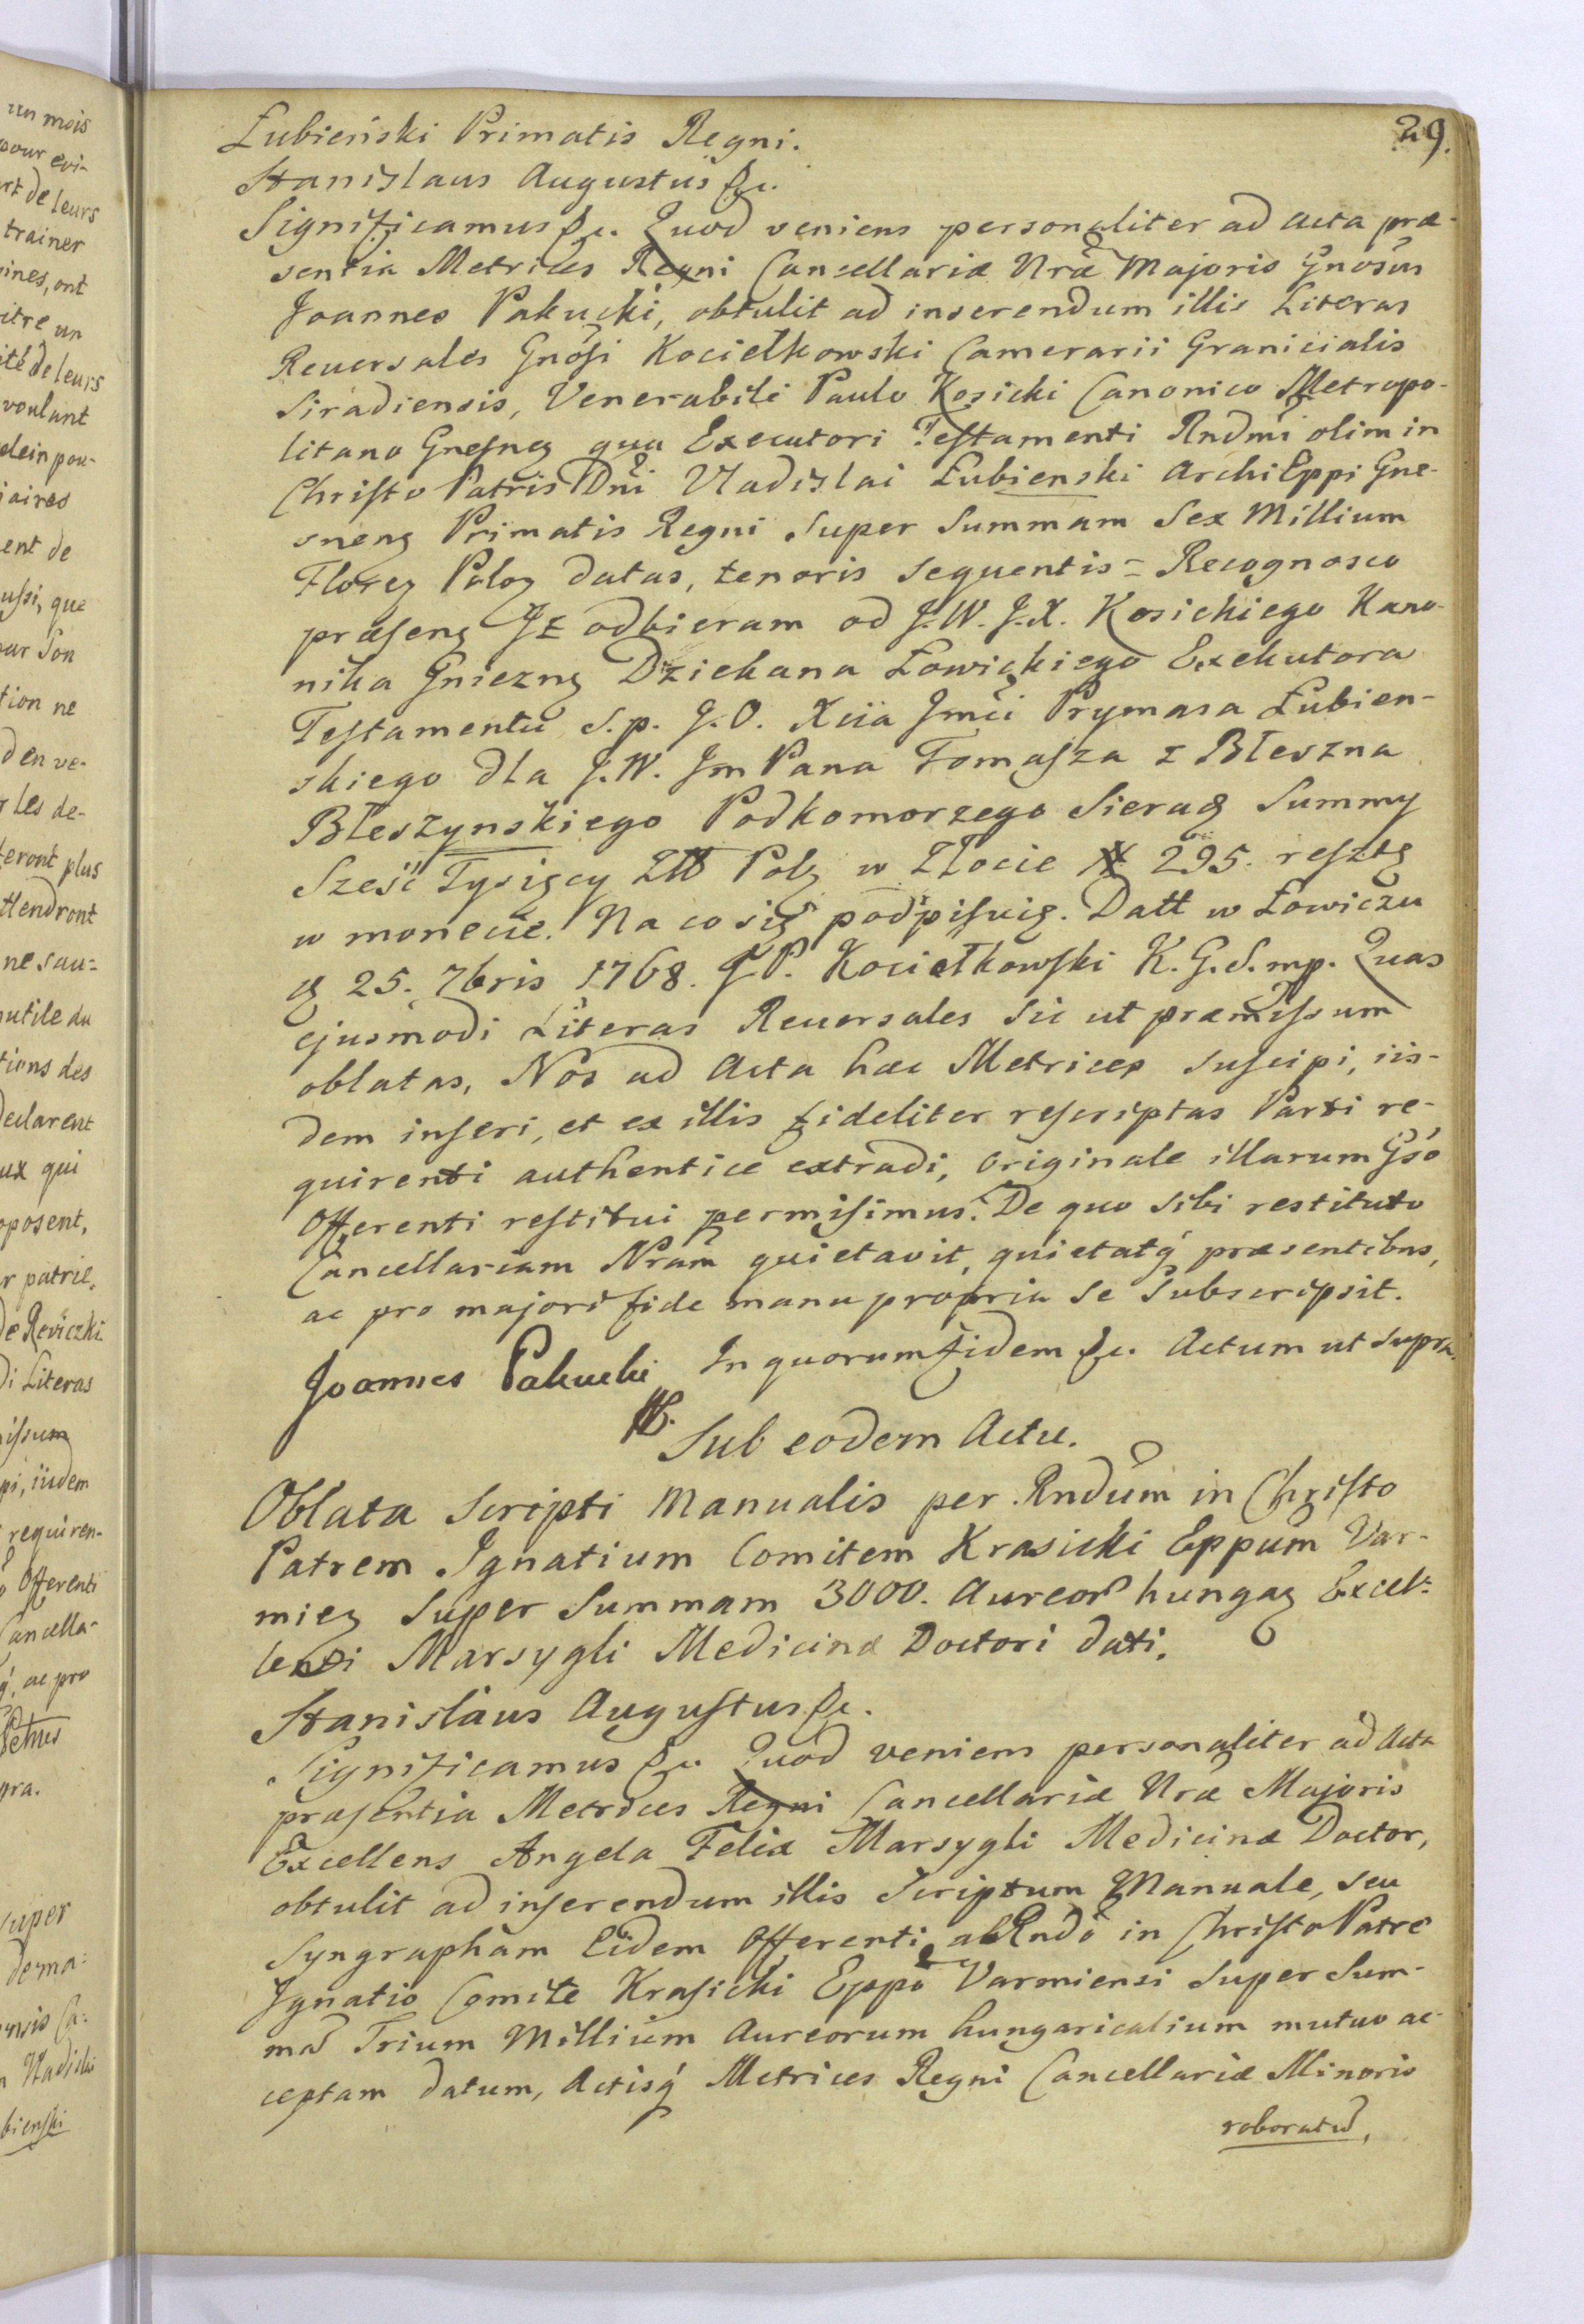 29.
Łubieński Primatis Regni.
Stanislaus Augustus &c.
Significamus &c. Quod veniens personaliter ad Acta præ-
sentia Metrices Regni Cancellariæ Nrae Majoris Gnosus
Joannes Pakucki, obtulit ad inserendum illis Literas
Reversales Gnosi Kociełkowski Camerarii Granicialis
Siradiensis, Venerabili Paulo Kosicki Canonico Metropo-
litano Gnesneg qua Executori Testamenti Rndmi olim in
Christo Patris Dni Vladislai Łubienski Archi Eppi Gne-
sneng Primatis Regni Super Summam Sex Millium
Floreg Polog datas, tenoris sequentis = Recognosco
præseng Jż odbieram od J.W.J.X. Kosickiego Kano-
nika Gniezng Dziekana Łowickiego Exekutora
Testamentu S.p. J.O. Xcia Jmci Prymasa Łubien-
skiego dla J.W. Jm Pana Tomasza z Błeszna
Błeszynskiego Podkomorzego Sieradg Summy
Sześć Tysięcy Złł Polg w Złocie # 295. resztę
w monecie. Na co się podpisuię. Datt w Łowiczu
d 25. 7bris 1768. J P. Kociełkowski K.G.S. mp. Quas
ejusmodi Literas Reversales Sic ut præmissum
oblatas, Nos ad Acta hæc Metrices suscipi, iis-
dem inseri, et ex illis fideliter rescriptas Parti re-
quirenti authentice extradi, originale illarum Gso
Offerenti restitui permisimus. De quo sibi restituto
Cancellariam Nram quietavit, quietatq præsentibus,
ac pro majori fide manu propria se Subscripsit.
Joannes Pakucki In quorum fidem &c. Actum ut supra.
Sub eodem Actu.
Oblata Scripti Manualis per Rndum in Christo
Patrem Ignatium Comitem Krasicki Eppum Var-
mieg Super Summam 3000. Aureor hungag Excel-
lenti Marsygli Medicinæ Doctori dati.
Stanislaus Augustus &c.
Significamus &c. Quod veniens personaliter ad Acta
præsentia Metrices Regni Cancellariæ Nræ Majoris
Excellens Angela Felix Marsygli Medicinæ Doctor,
obtulit ad inserendum illis Scriptum Manuale, seu
Syngrapham Eidem Offerenti ab Rndo in Christo Patre
Ignatio Comite Krasicki Eppo Varmiensi Super Sum-
ma Trium Millium Aureorum hungaricalium mutuo ac-
ceptam datum, Actisq Metrices Regni Cancellariæ Minoris
roboratu,